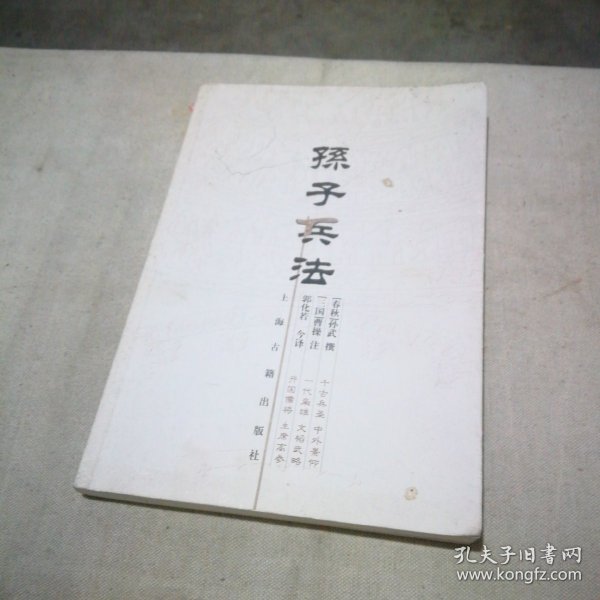 孫子兵法
[春秋]孙武 撰
[三国]曹操 注
郭化若 今译
千古兵圣 中外景仰
一代枭雄 文韬武略
开国儒将 主席高参
上海古籍出版社
孔夫子旧书网
www.kongfz.com